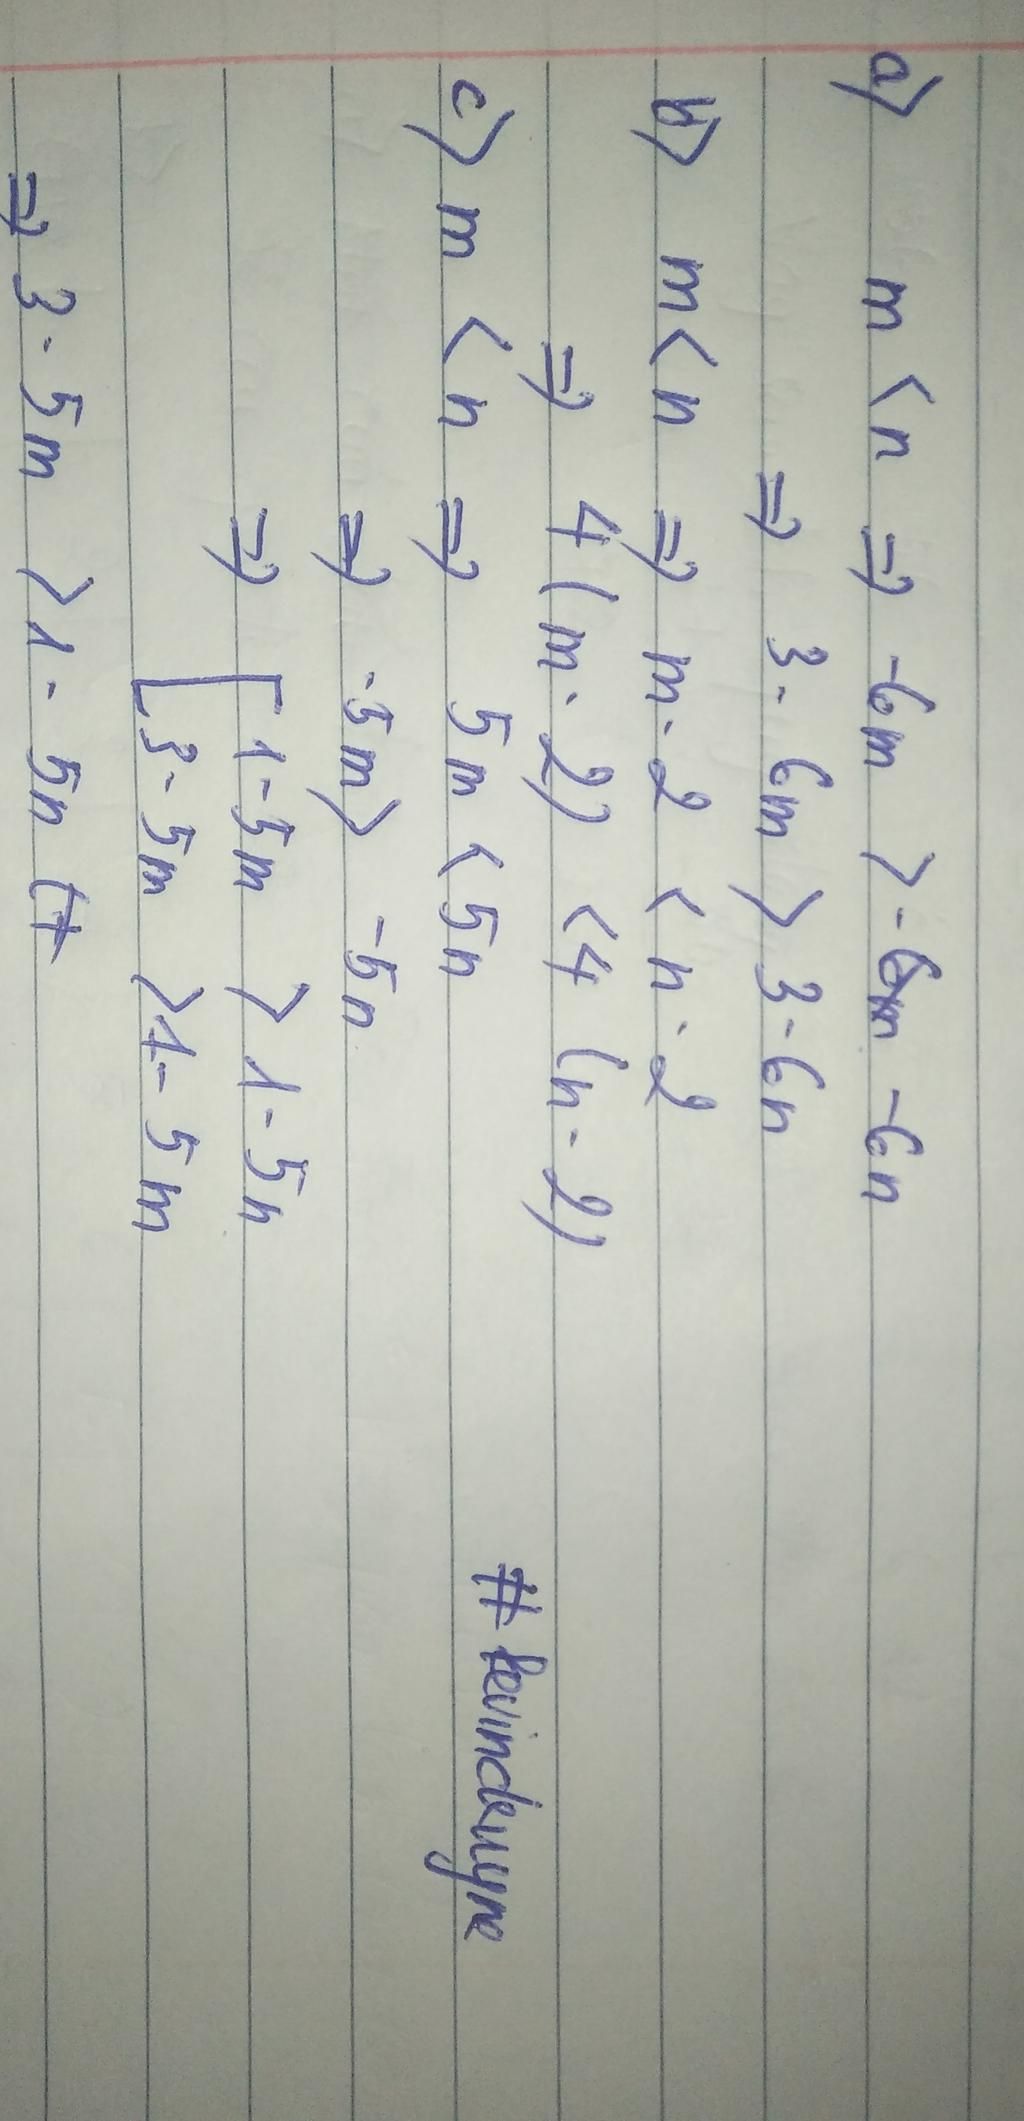 a) m < n => -6m > -6n
=> 3 - 6m > 3 - 6n
b) m < n => m - 2 < n - 2
=> 4 (m - 2) < 4 (n - 2)
c) m < n => 5m < 5n
=> -5m > -5n
=> [ 1 - 5m > 1 - 5n
3 - 5m > 1 - 5m
=> 3 - 5m > 1 - 5n (+